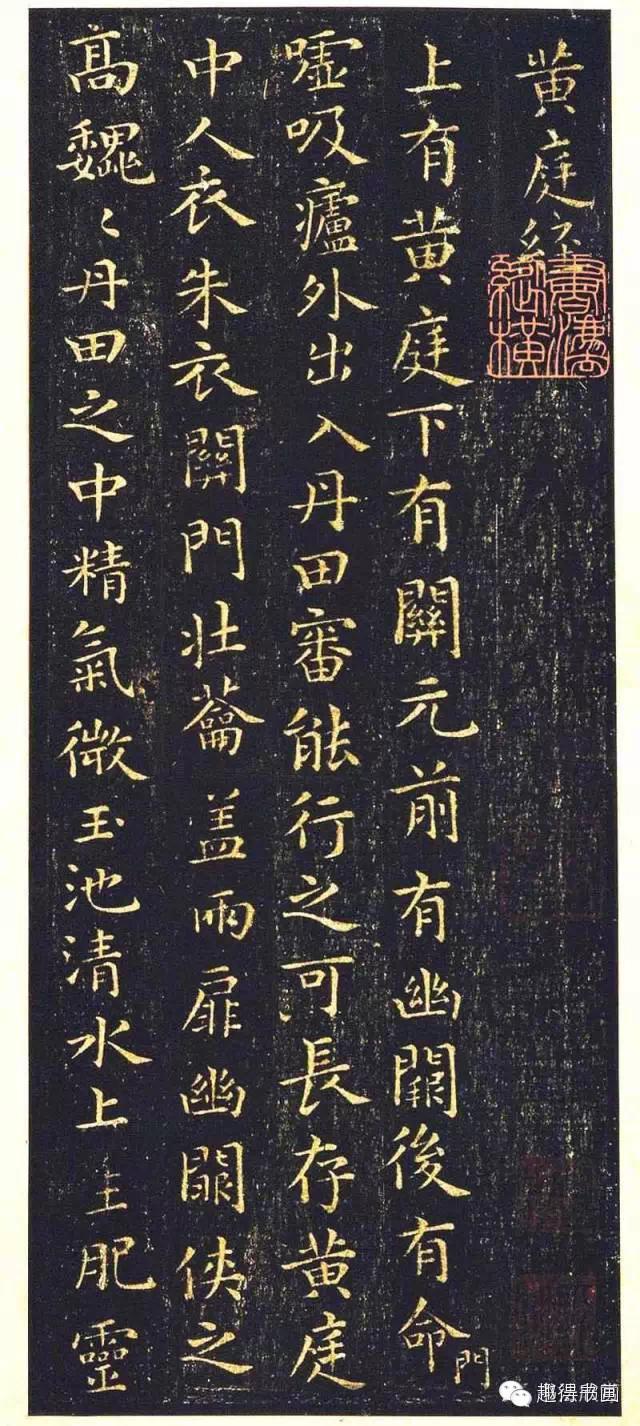 黄庭經
上有黄庭下有關元前有幽闕後有命門
嘘吸廬外出入丹田審能行之可長存黄庭
中人衣朱衣關門壮蘥盖兩扉幽闕俠之
高巍〻丹田之中精氣微玉池清水上生肥靈